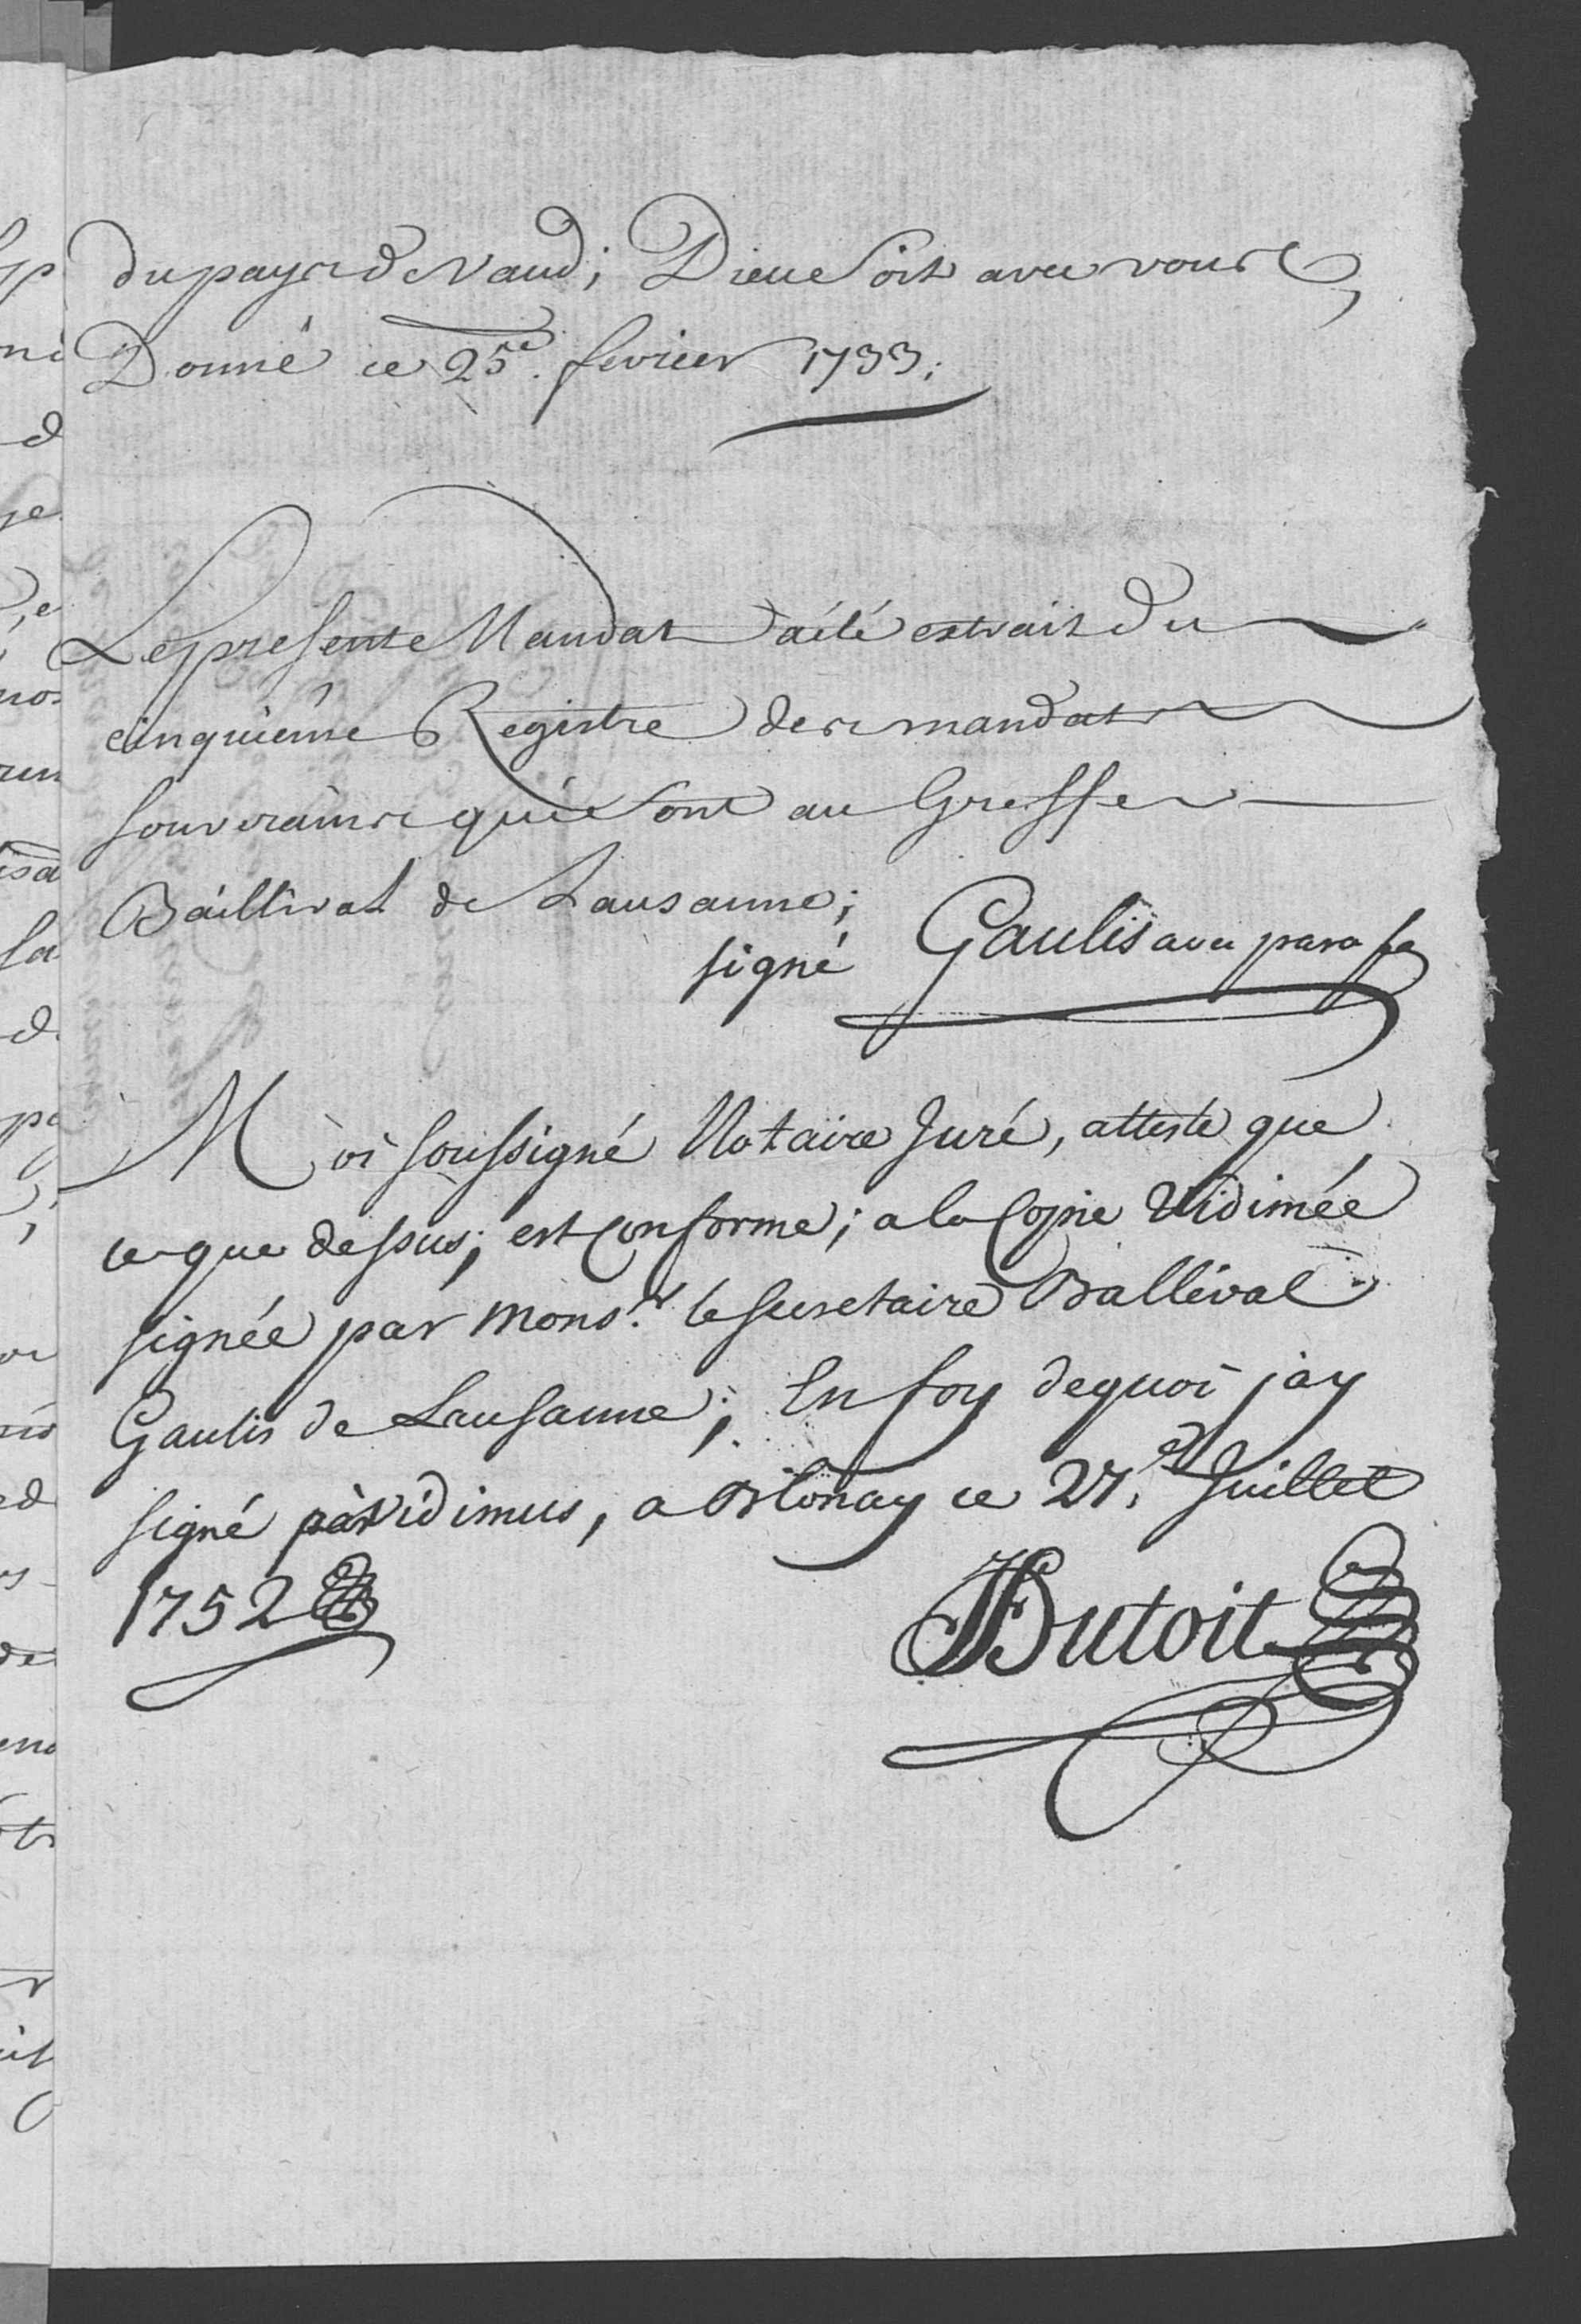 du pays de Vaud; Dieu soit avec vous
Donné ce 25e. fevrier 1733;
Le present Mandat a été extrait du
cinquième Registre des mandats
souverains qui sont au Greffe
Baillival de Lausanne;
signé Gaulis avec parafe
Moi soussigné Notaire Juré, atteste que
ce que dessus; est conforme; a la Copie Vidimée
signée par Monsr. le secretaire Ballival
Gaulis de Lausanne; En foy dequoi jay
signé par vidimus, a Blonay ce 27e. Juillet
1752
Dutoit